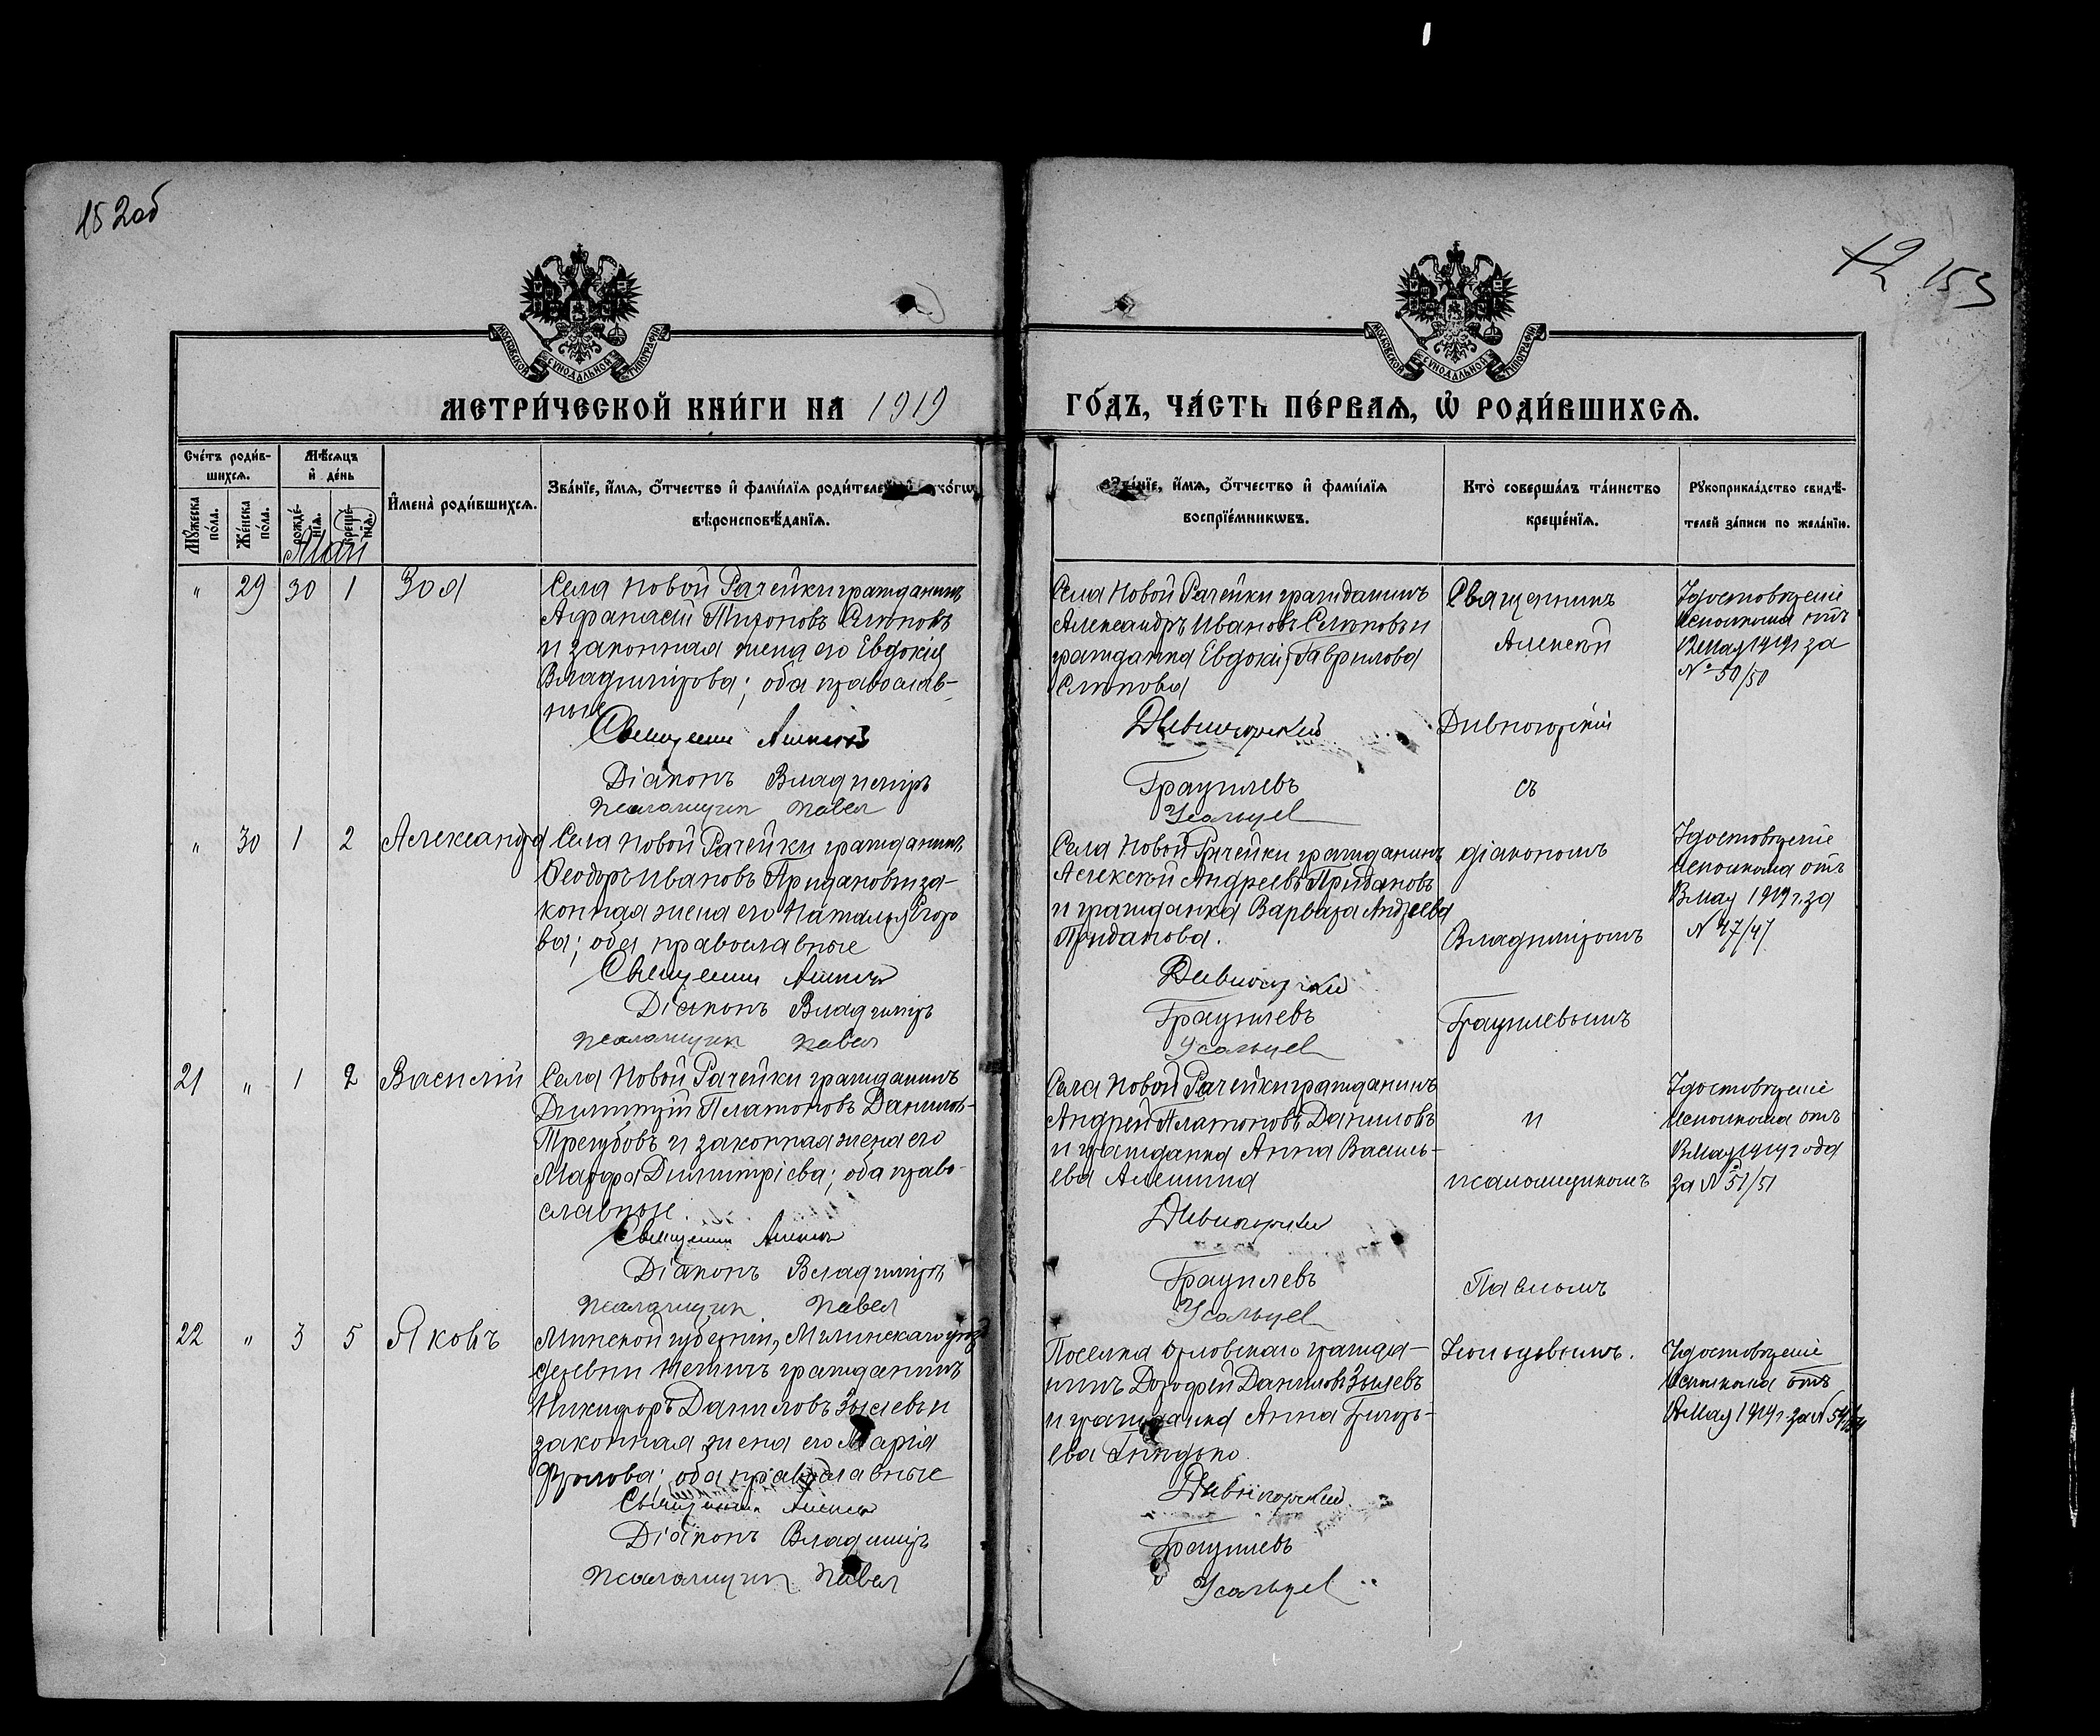 152об
12 153
МОСКОВСКОЙ СУНОДАЛЬНОЙ ТИПОГРАФІИ
МОСКОВСКОЙ СУНОДАЛЬНОЙ ТИПОГРАФІИ
МЕТРИ́ЧЕСКОЙ КНИ́ГИ НА 1919
ГО́ДЪ, ЧА́СТЬ ПЕ́РВАЯ, Ѡ РОДИ́ВШИХСЯ.
Сче́тъ роди́в-
шихся.
Мѣ́сяцъ
и де́нь
Му́жеска по́ла.
Же́нска по́ла.
рожде́-
нїя.
креще́-
нїя.
Имена̀ роди́вшихся.
Зва́нїе, и́мя, о́тчество и фами́лїя роди́телей
вѣроисповѣ́данїя.
Зва́нїе, и́мя, о́тчество и фами́лїя
воспрїе́мникѡвъ.
Кто̀ соверша́лъ та́инство
креще́нїя.
Рукоприкла́дство свидѣ́-
телей за́писи по жела́нїю.
Май
" 29 30 1 Зоя
Села Новой Рачейки гражданинъ
Афанасій Тихоновъ Слюповъ
и законная жена его Евдокія
Владимірова; оба православ-
ные
Священникъ Алексѣй
Діаконъ Владиміръ
Псаломщик Павел
Села Новой Рачейки гражданинъ
Александръ Ивановъ Слюповъ и
гражданка Евдокія Гаврилова
Слюпова
Дивногорский
Грацилевъ
Усольцев
Священникъ
Алексѣй
Дивногорскій
съ
Удостовѣреніе
Исполкома отъ
12 Мая 1919 г за
№ 50/50
" 30 1 2 Александра
Села Новой Рачейки гражданинъ
Ѳеодоръ Ивановъ Придановъ и за-
конная жена его Наталья Егоро
ва; оба православные
Священникъ Алексѣй
Діаконъ Владиміръ
Псаломщик Павел
Села Новой Рачейки гражданинъ
Алексѣй Андреевъ Придановъ
и гражданка Варвара Андреева
Приданова.
Дивногорский
Грацилевъ
Усольцев
діакономъ
Владиміромъ
Грацилевымъ
Удостовѣреніе
Исполкома отъ
Мая 1919 г. за
№ 47/47
21 " 1 2 Василій
Села Новой Рачейки гражданинъ
Димитрій Платоновъ Данилов-
Трегубовъ и законная жена его
Марфа Димитріева; оба право-
славные.
Священникъ Алексѣй
Діаконъ Владиміръ
Псаломщик Павел
Села Новой Рачейки гражданинъ
Андрей Платоновъ Даниловъ
и гражданка Анна Василь-
ева Алешина
Дивногорский
Грацилевъ
Усольцев
и
псаломщикомъ
Павломъ
Удостовѣреніе
Исполкома отъ
Мая 1919 года
за № 51/51
22 " 3 5 Яковъ
Минской губерніи,
деревни гражданинъ
Никифоръ Даниловъ Зылевъ и
законная жена его Марія
Фролова; оба православные
Священникъ Алексѣй
Діаконъ Владиміръ
Псаломщик Павел
Поселка Орловскаго гражда-
нинъ Дорофей Даниловъ Зылевъ
и гражданка Анна Григорь-
ева
Дивногорский
Грацилевъ
Усольцев
Усольцевымъ.
Удостовѣреніе
Исполкома отъ
Мая 1919 г. за №